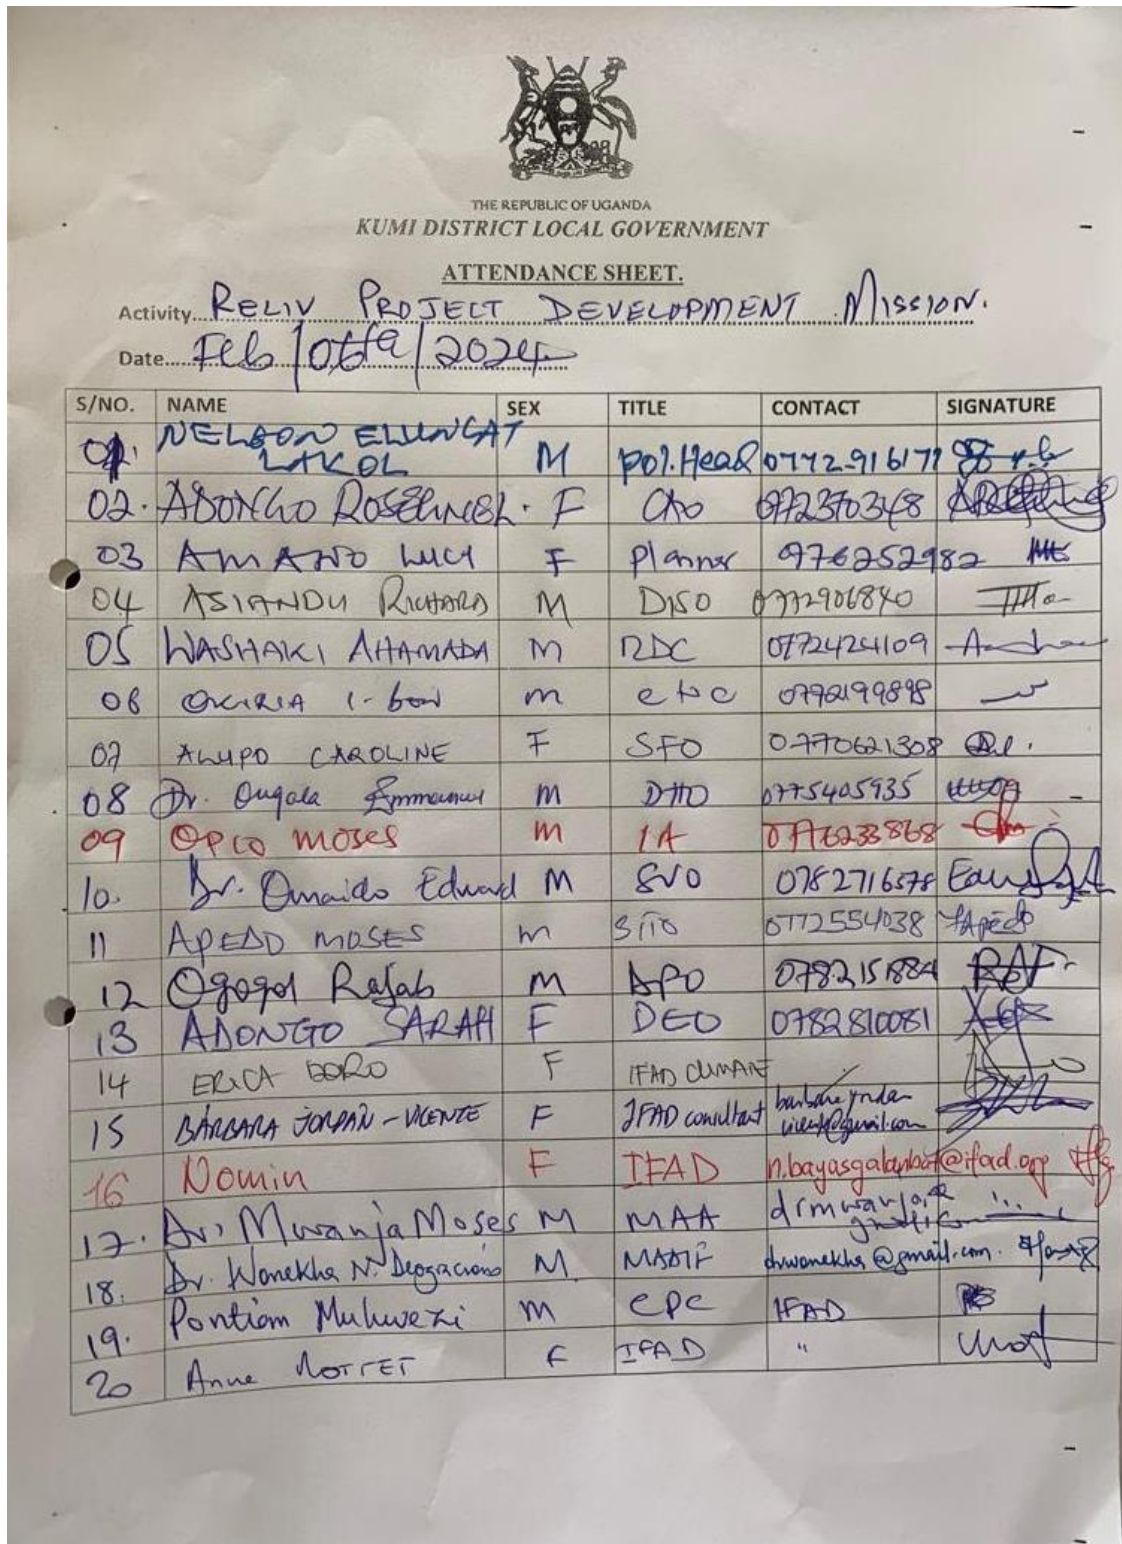 THE REPUBLIC OF UGANDA
KUMI DISTRICT LOCAL GOVERNMENT
ATTENDANCE SHEET.
Activity RELIV PROJECT DEVELOPMENT MISSION.
Date Feb/06th/2024
S/NO. NAME SEX TITLE CONTACT SIGNATURE
01. NELSON ELUNGAT LAKOL M pol. Head 0772-916177
02. ADONGO F CAO 0772370348
03 AMANO LUCY F Planner 976252982
04 ASIANDU RICHARD M DISO 0772906840
05 WASHAKI AHAMADA M RDC 0772424109
06 OKIRIA M 0772199898
07 ALUPO CAROLINE F SFO 0770621308
08 Dr. Ongala Emmanuel M DHO 0775405935
09 OPIO MOSES M IA 0776233868
10. Dr. Omaido Edward M SVO 0782716578
11 APEDO MOSES M 0772554038 Apedo
12 Ogogol Rajab M APO 0782151884
13 ADONGO SARAH F DEO 0782810081
14 ERICA DORO F IFAD CLIMATE
15 BÁRBARA JORDÁN-VICENTE F IFAD consultant
16 Nomin F IFAD
17. Dr. Mwanja Moses M MAA
18. Dr. Wanekha N. Deogracious M. MAAIF drwanekha@gmail.com.
19. Pontian Muhwezi M CPC IFAD
20 Anne MOTTET F IFAD "